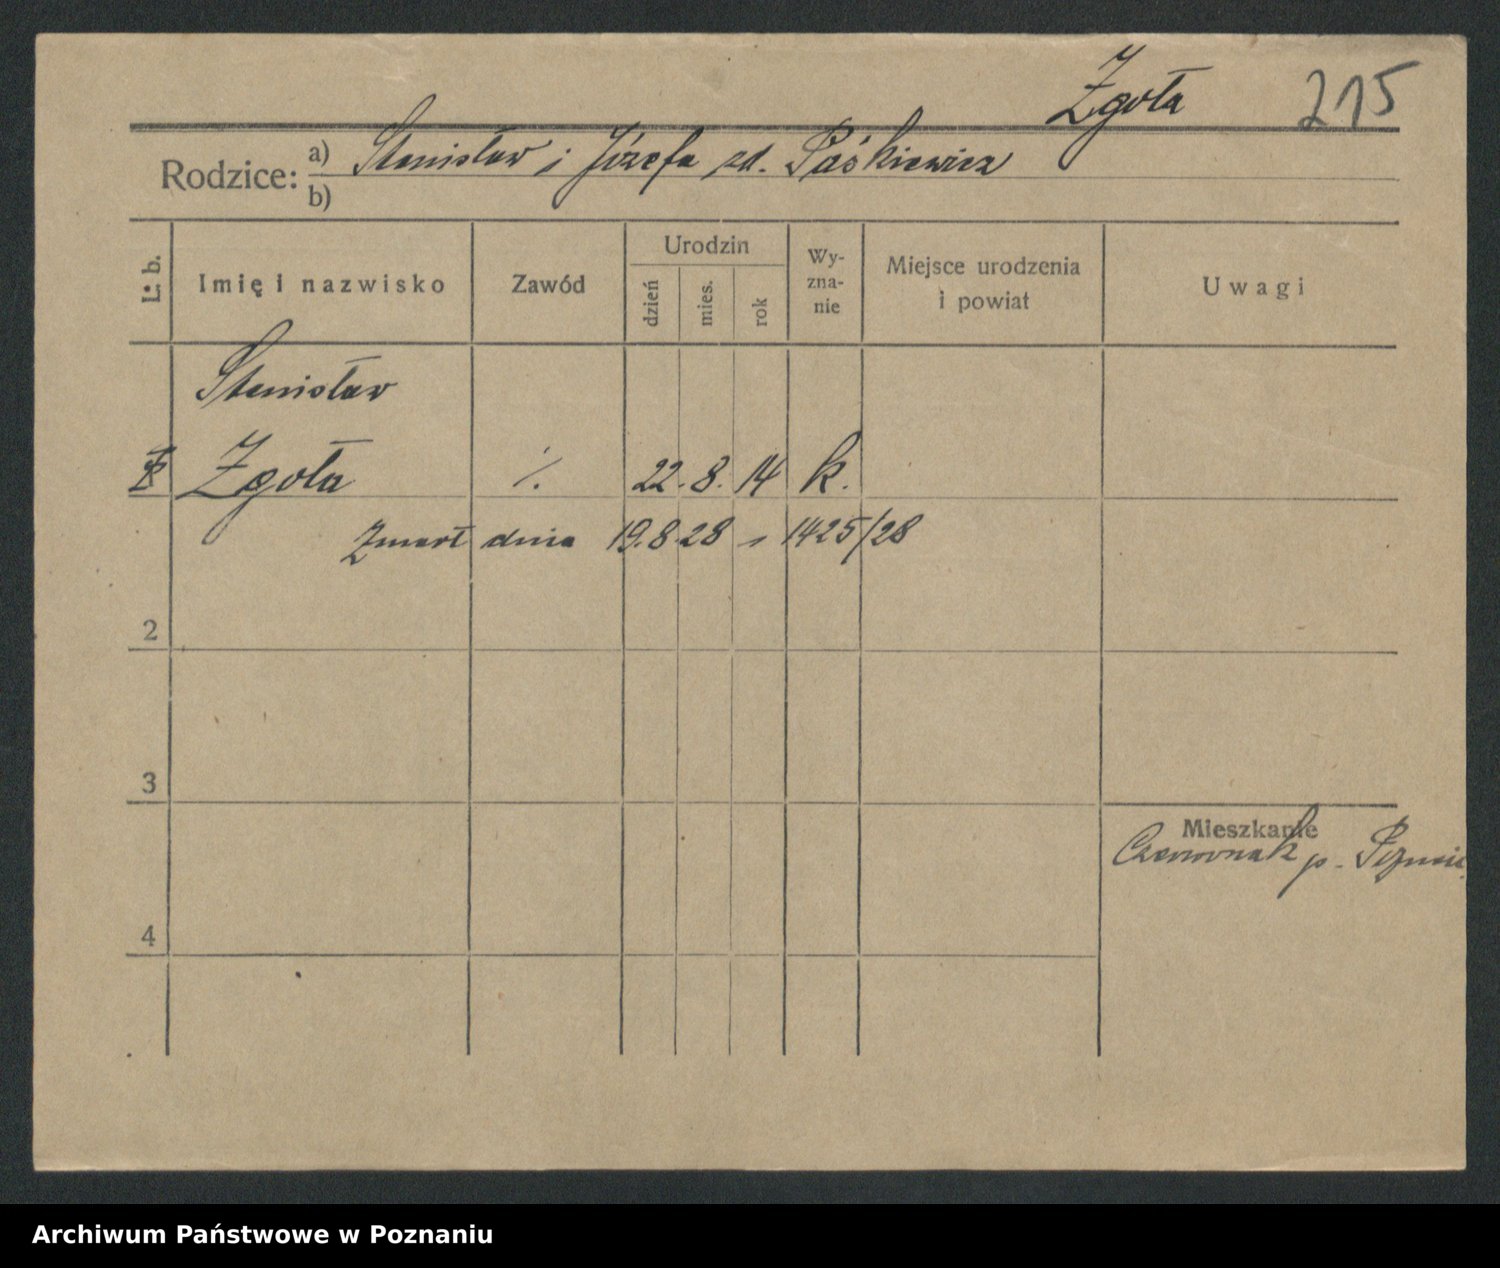 Zgoła 215
Rodzice: a) Stanisław i Józefa zd. Paśkiewicz
b)
L. b.
Imię i nazwisko
Zawód
Urodzin
dzień
mies.
rok
Wy-
zna-
nie
Miejsce urodzenia
i powiat
Uwagi
Stanisław
Zgoła ./. 22. 8. 14 k.
Zmarł dnia 19.8.28 - 1425/28
2
3
4
Mieszkanie
Czerwonak p.
Archiwum Państwowe w Poznaniu